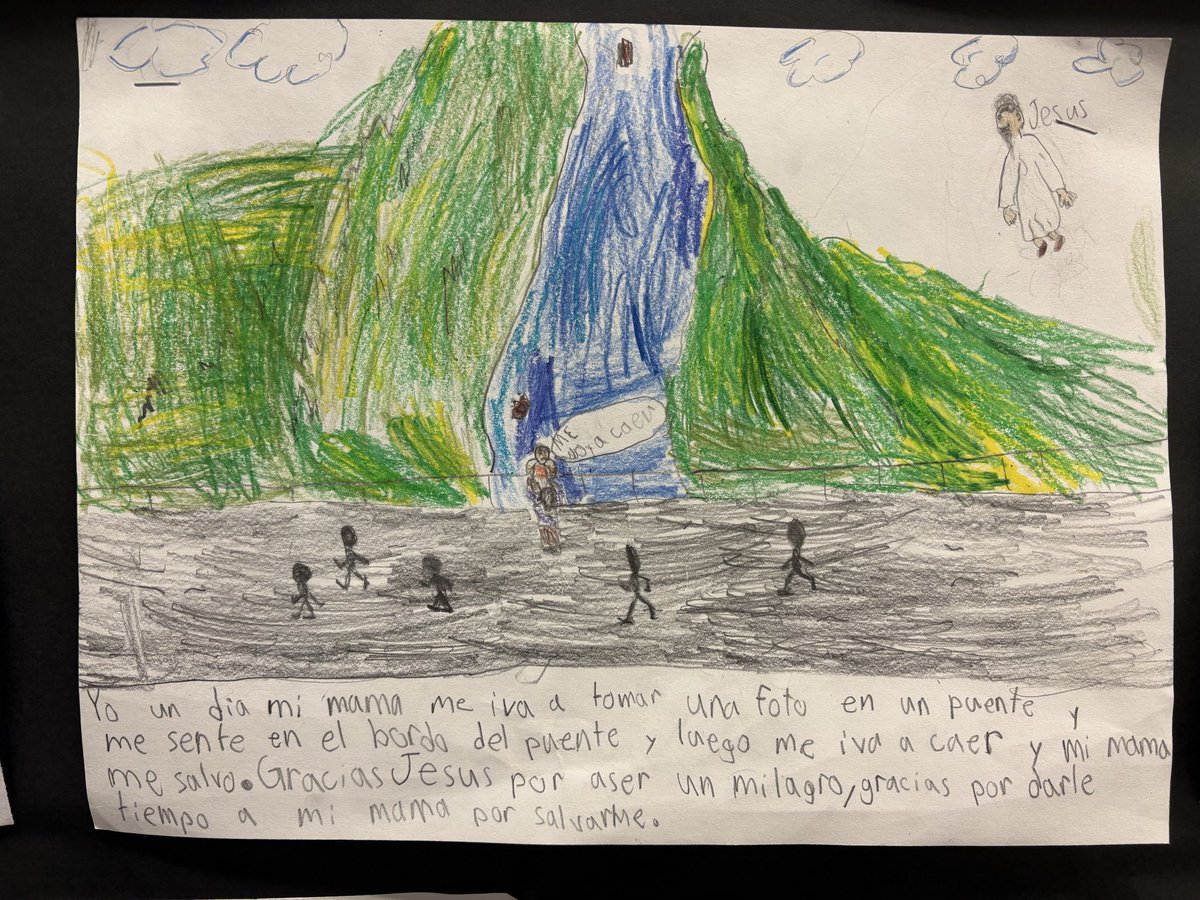 Jesus
ME
voy a caer
Yo un dia mi mama me iva a tomar una foto en un puente y
me sente en el bordo del puente y luego me iva a caer y mi mama
me salvo. Gracias Jesus por aser un milagro, gracias por darle
tiempo a mi mama por salvarme.